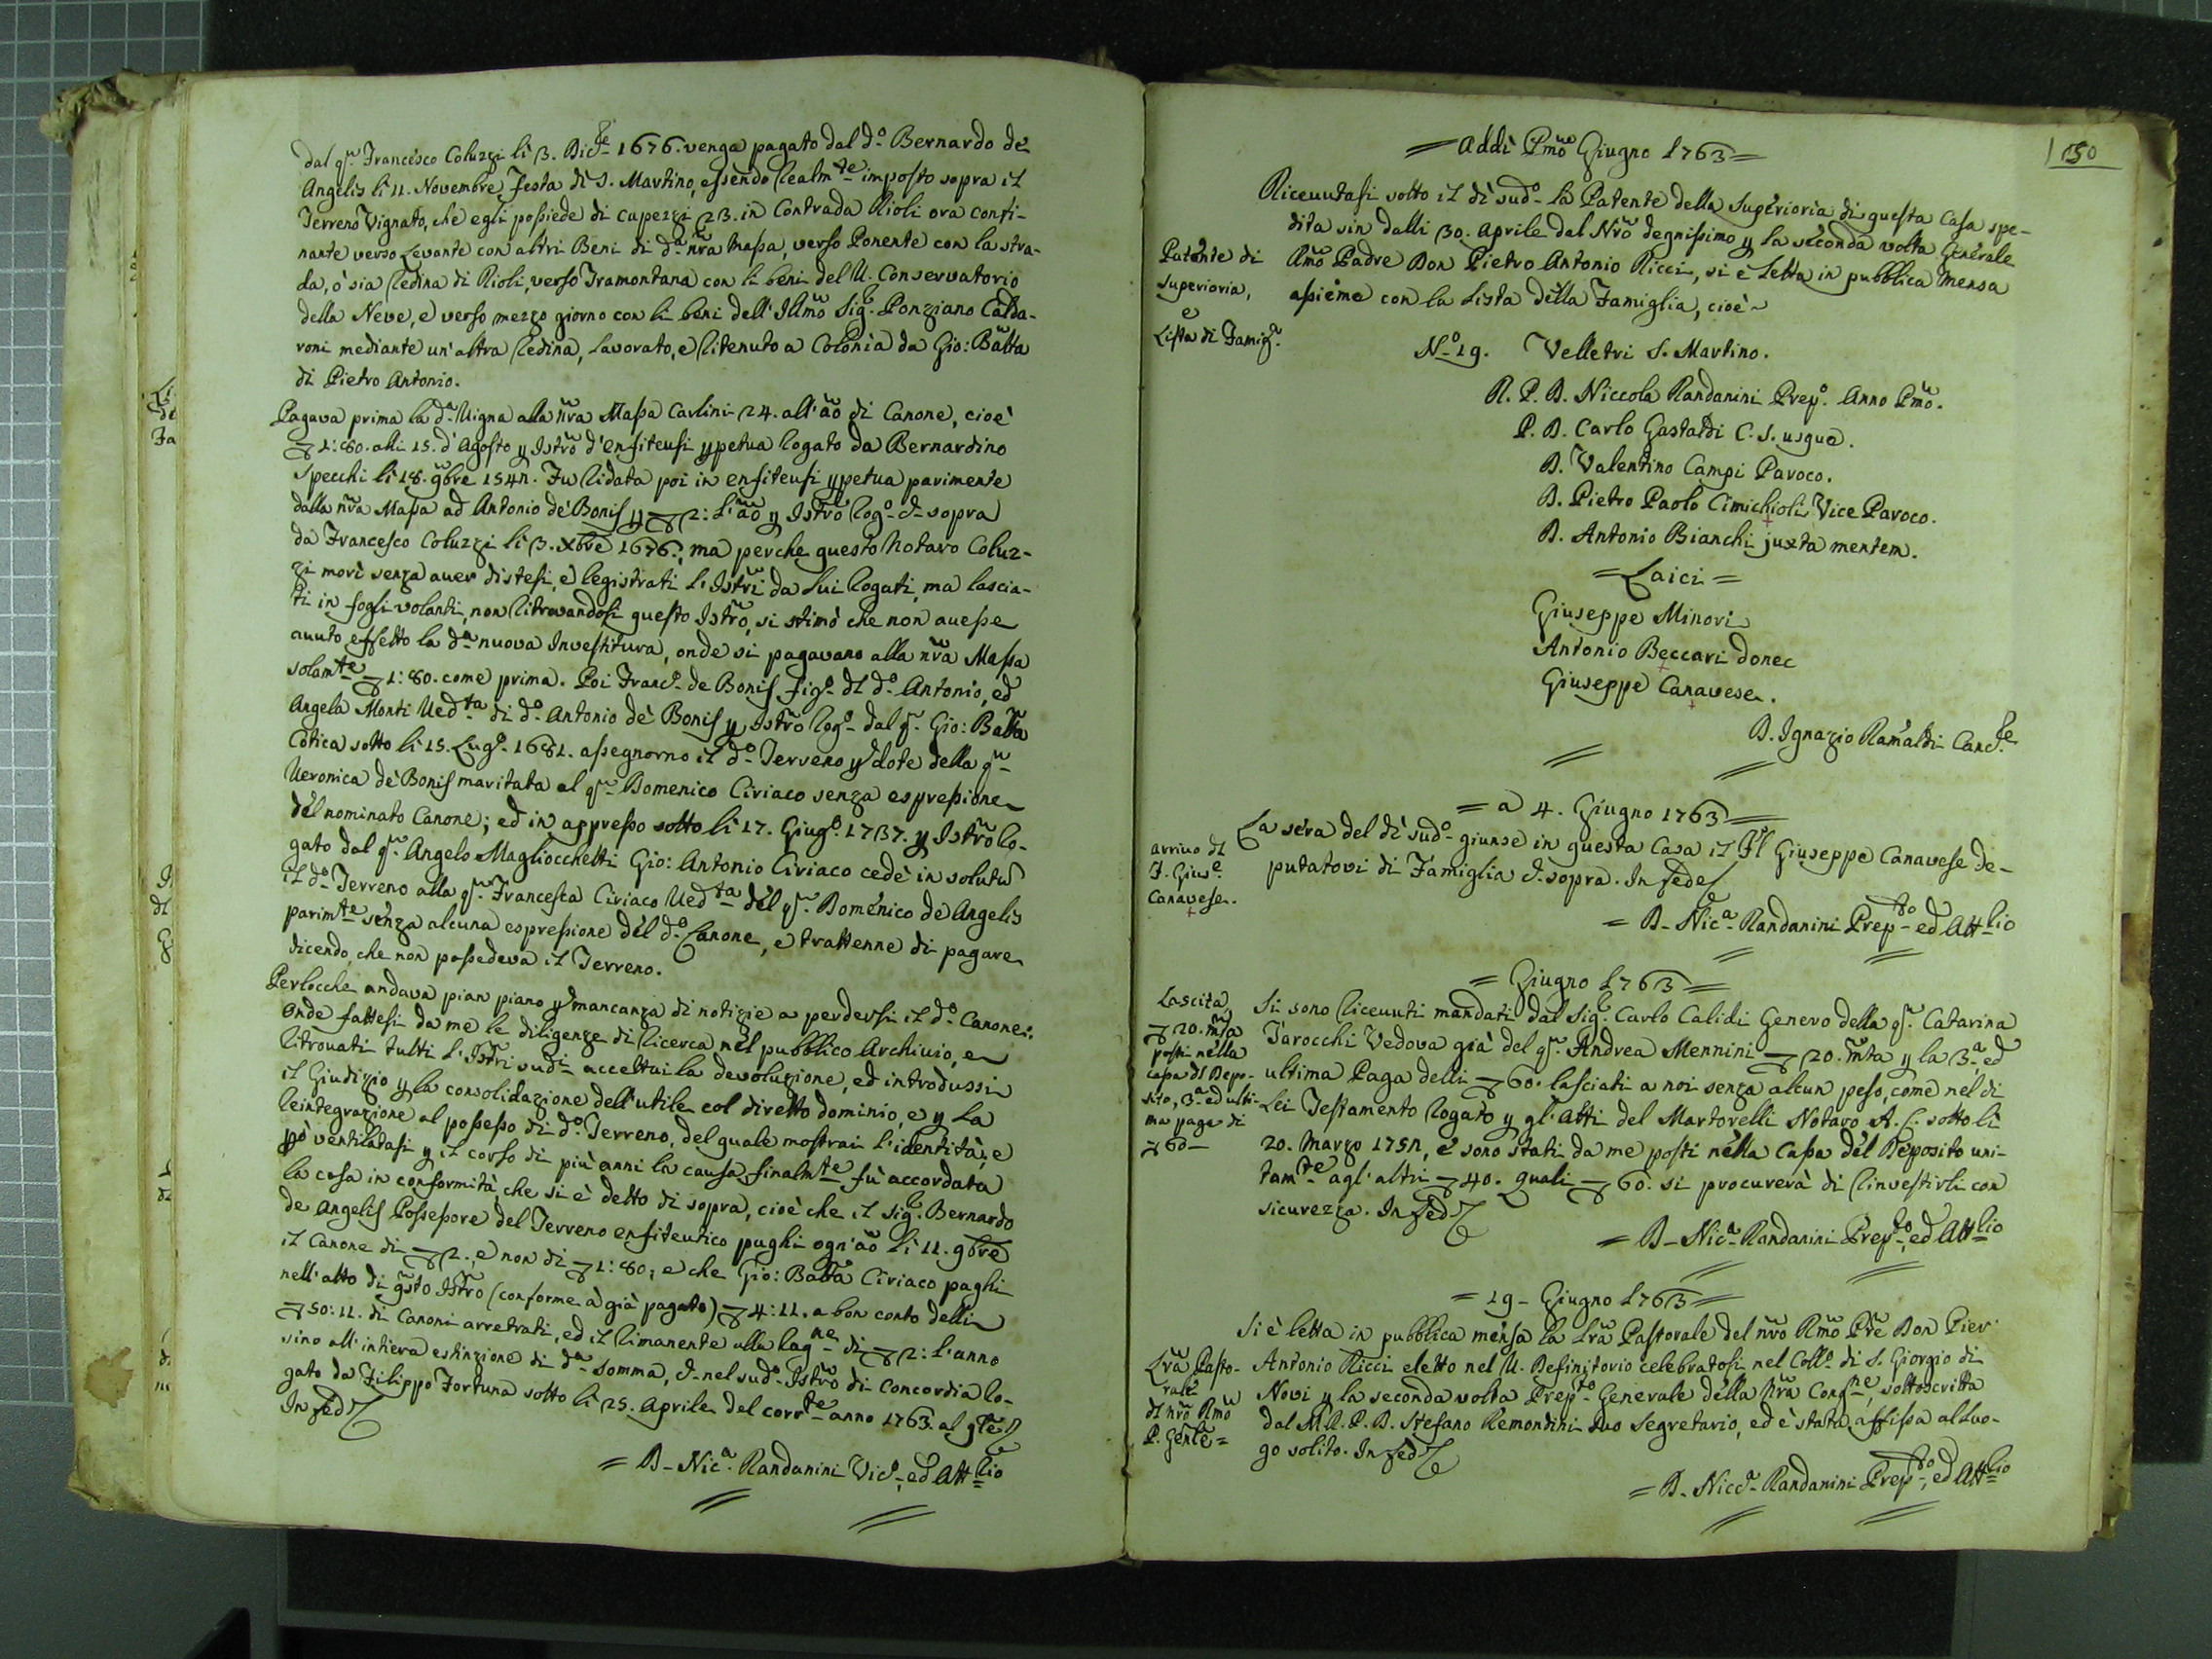 dal qm̃ Francesco Coluzzi li 3. Dicẽ 1676. venga pagato dal dº Bernardo de
Angelis li 11. Novembre festa di S. Martino, essendo Realmte imposto sopra il
Terreno Vignato, che egli possiede di cupezzi 23. in Contrada Rioli ora confi-
nante verso Levante con altri Beni di da nr̃a Massa, verso Ponente con la stra-
da, ò sia Redina di Rioli, verso Tramontana con li beni del V. Conservatorio
della Neve, e verso mezzo giorno con li beni dell' Illmo Sigr Ponziano Calda-
roni mediante un' altra Redina, Lavorato, e Ritenuto a Colonia da Gio: Batt̃a
di Pietro Antonio.
Pagava prima la da Vigna alla nr̃a Massa Carlini 24. all' ão di Canone, cioè
1:80. alli 15. d' Agosto p Istrõ d' enfiteusi ppetua Rogato da Bernardino
Specchi li 18. 9bre 1547. Fu Ridata poi in enfiteusi ppetua parimente
dalla nr̃a Massa ad Antonio de' Bonis p 2: l' ão p Istrõ Rogº d- sopra
da Francesco Coluzzi li 3. Xbre 1676; ma perche questo Notaro Coluz-
zi morì senza aver distesi, e Registrati l' Istri da Lui Rogati, ma lascia-
ti in fogli volanti, non Ritrovandosi questo Istrõ, si stimò che non avesse
avuto effetto la da nuova Investitura, onde si pagavano alla nr̃a Massa
solamte 1:80. come prima. Poi Francº de Bonis figº dl dº Antonio, ed
Angela Monti Vedta di dº Antonio de' Bonis p Istrõ Rogº dal qm̃ Gio: Batt̃a
Cotica sotto li 15. Lugº 1681. assegnorno il dº Terreno p dote della qm̃
Veronica de' Bonis maritata al qm̃ Domenico Ciriaco senza espressione
del nominato Canone; ed in appresso sotto li 17. Giugº 1737. p Istrõ Ro-
gato dal qm̃ Angelo Magliocchetti Gio: Antonio Ciriaco cedè in solutũ
il dº Terreno alla qm̃ Francesca Ciriaco Vedta del qm̃ Domenico de Angelis
parimte senza alcuna espressione del dº Canone, e trattenne di pagare
dicendo, che non possedeva il Terreno.
Perlocche andava pian piano p mancanza di notizie a perdersi il dº Canone:
Onde fattesi da me le diligenze di Ricerca nel pubblico Archivio, e
Ritrovati tutti l' Istri sudi accettui la devoluzione, ed introdussi
il Giudizio p la consolidazione dell' utile col diretto dominio, e p La
Reintegrazione al possesso di dº Terreno, del quale mostrai l' identità, e
pò ventilatasi p il corso di più anni la causa finalmte fù accordata
la cosa in conformità, che si è detto di sopra, cioè che il Sigr Bernardo
de Angelis Possessore del Terreno enfiteutico paghi ogn' ão li 11. 9bre
il Canone di 2., e non di 1:80; e che Gio: Batt̃a Ciriaco paghi
nell' atto di q̃sto Istrõ (conforme à già pagato) 4:11. a bon conto delli
50:11. di Canoni arretrati, ed il Rimanente alla Ragne di 2: l' anno
sino all' intiera estinzione di da Somma, d- nel sudº Istrõ di Concordia Ro-
gato da Filippo Fortuna sotto li 25. Aprile del corrte anno 1763. al qle
In fede
= D- Nica Randanini Vicº, ed Attrio
150
= Addì Pmõ Giugno 1763 =
Ricevutasi sotto il dì sudº la Patente della Superioria di questa Casa spe-
dita sin dalli 30. Aprile dal Nrõ degnissimo p la seconda volta Generale
Rmõ Padre Don Pietro Antonio Ricci, si è Letta in pubblica Mensa
assieme con la Lista della Famiglia, cioè
Patente di
Superioria,
e
Lista di Famigª
Nº 19. Velletri S. Martino.
R. P. D. Niccola Randanini Prepº Anno Pmõ.
P. D. Carlo Gastaldi C. S. usque.
D. Valentino Campi Paroco.
D. Pietro Paolo Cimichioli Vice Paroco.
D. Antonio Bianchi juxta mentem.
= Laici =
Giuseppe Minori
Antonio Beccari donec
Giuseppe Canavese.
D. Ignazio Ramaldi Cancre
= a 4. Giugno 1763 =
La sera del dì sudº giunse in questa Casa il Fl Giuseppe Canavese de-
putatovi di Famiglia d- sopra. In fede
arrivo dl
F. Giuse
Canavese.
= D- Nica Randanini Prepto ed Attrio
= Giugno 1763 =
Si sono Ricevuti mandati dal Sigr Carlo Calidi Genero della qm̃ Catarina
Tarocchi Vedova già del qm̃ Andrea Mennini 20. mta p la 3a, ed
ultima Paga delli 60. lasciati a noi senza alcun peso, come nel di
Lei Testamento Rogato p gl' Atti del Martorelli Notaro A. C. sotto li
20. Marzo 1757, e sono stati da me posti nella Cassa del Deposito uni-
tamte agl' altri 40. quali 60. si procurerà di Rinvestirli con
sicurezza. In fede
Lascita
20. mta
posti nella
cassa dl Depo-
sito, 3a ed ulti-
ma paga di
60-
= D- Nica Randanini Prepto, ed Attrio
= 19- Giugno 1763 =
Si è letta in pubblica mensa la Lrã Pastorale del nrõ Rmõ Prẽ Don Pier'
Antonio Ricci eletto nel V. Definitorio celebratosi nel Collº di S. Giorgio di
Novi p la seconda volta Prepto Generale della Nrã Congne, sottoscritta
dal M. R. P. D. Stefano Remondini suo Segretario, ed è stata affissa al Luo-
go solito. In fede
Lrã Pasto-
rale
dl nrõ Rmõ
P. Genle=
= D- Niccª Randanini Prepto, ed Attrio